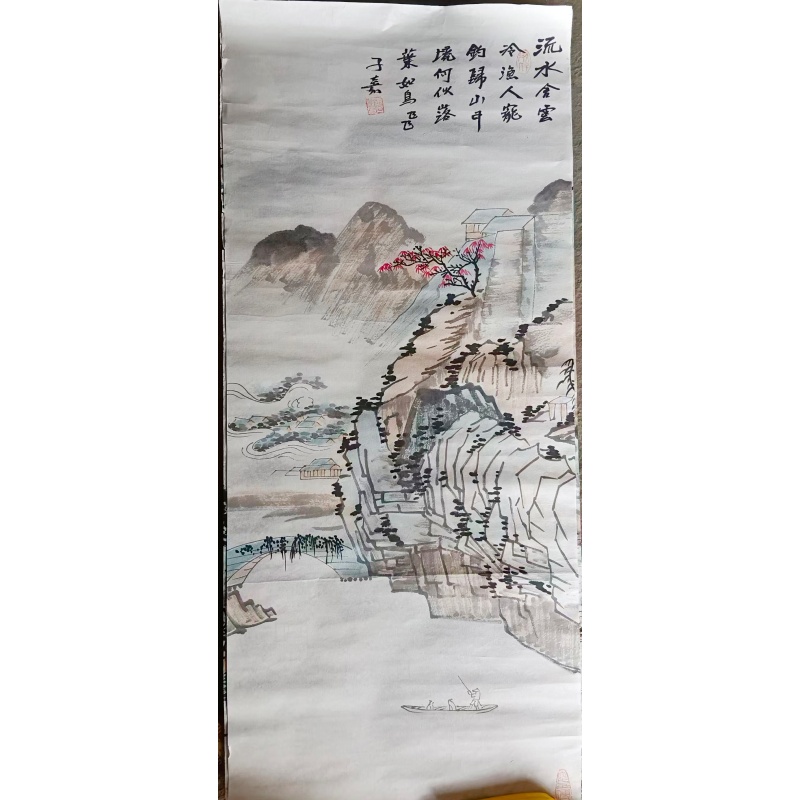 流水含雲
冷漁人罷
釣歸山中
境何似落
葉如鳥飛
子嘉